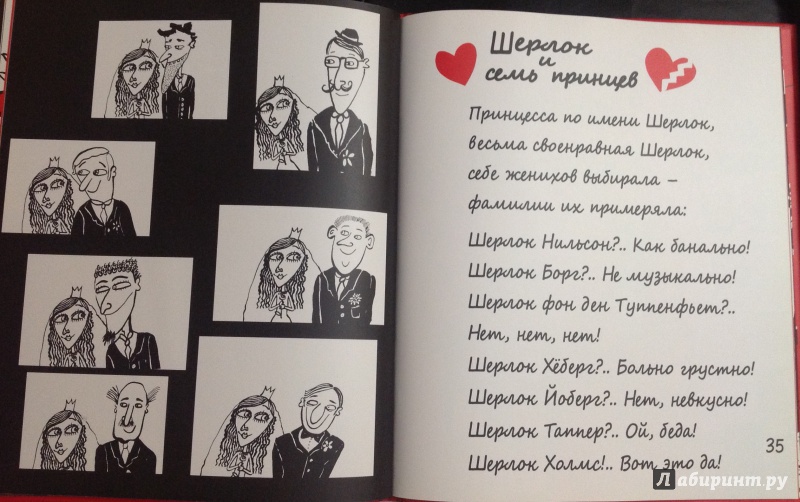 Шерлок
и
семь принцев
Принцесса по имени Шерлок,
весьма своенравная Шерлок,
себе женихов выбирала –
фамилии их примеряла:
Шерлок Нильсон?.. Как банально!
Шерлок Борг?.. Не музыкально!
Шерлок фон ден Туппенфьет?..
Нет, нет, нет!
Шерлок Хёберг?.. Больно грустно!
Шерлок Йоберг?.. Нет, невкусно!
Шерлок Таппер?.. Ой, беда!
Шерлок Холмс!.. Вот это да!
35
Лабиринт.ру